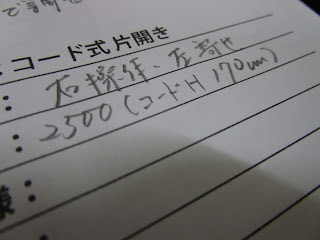 :コード式片開き
: 右操作、左寄せ
: 2500(コードH 170cm)
様: